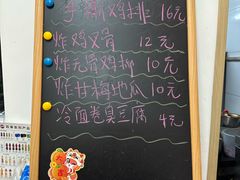 手撕鸡排 16元
炸鸡叉骨 12元
炸无骨鸡柳 10元
炸甘梅地瓜 10元
冷面卷臭豆腐 4元